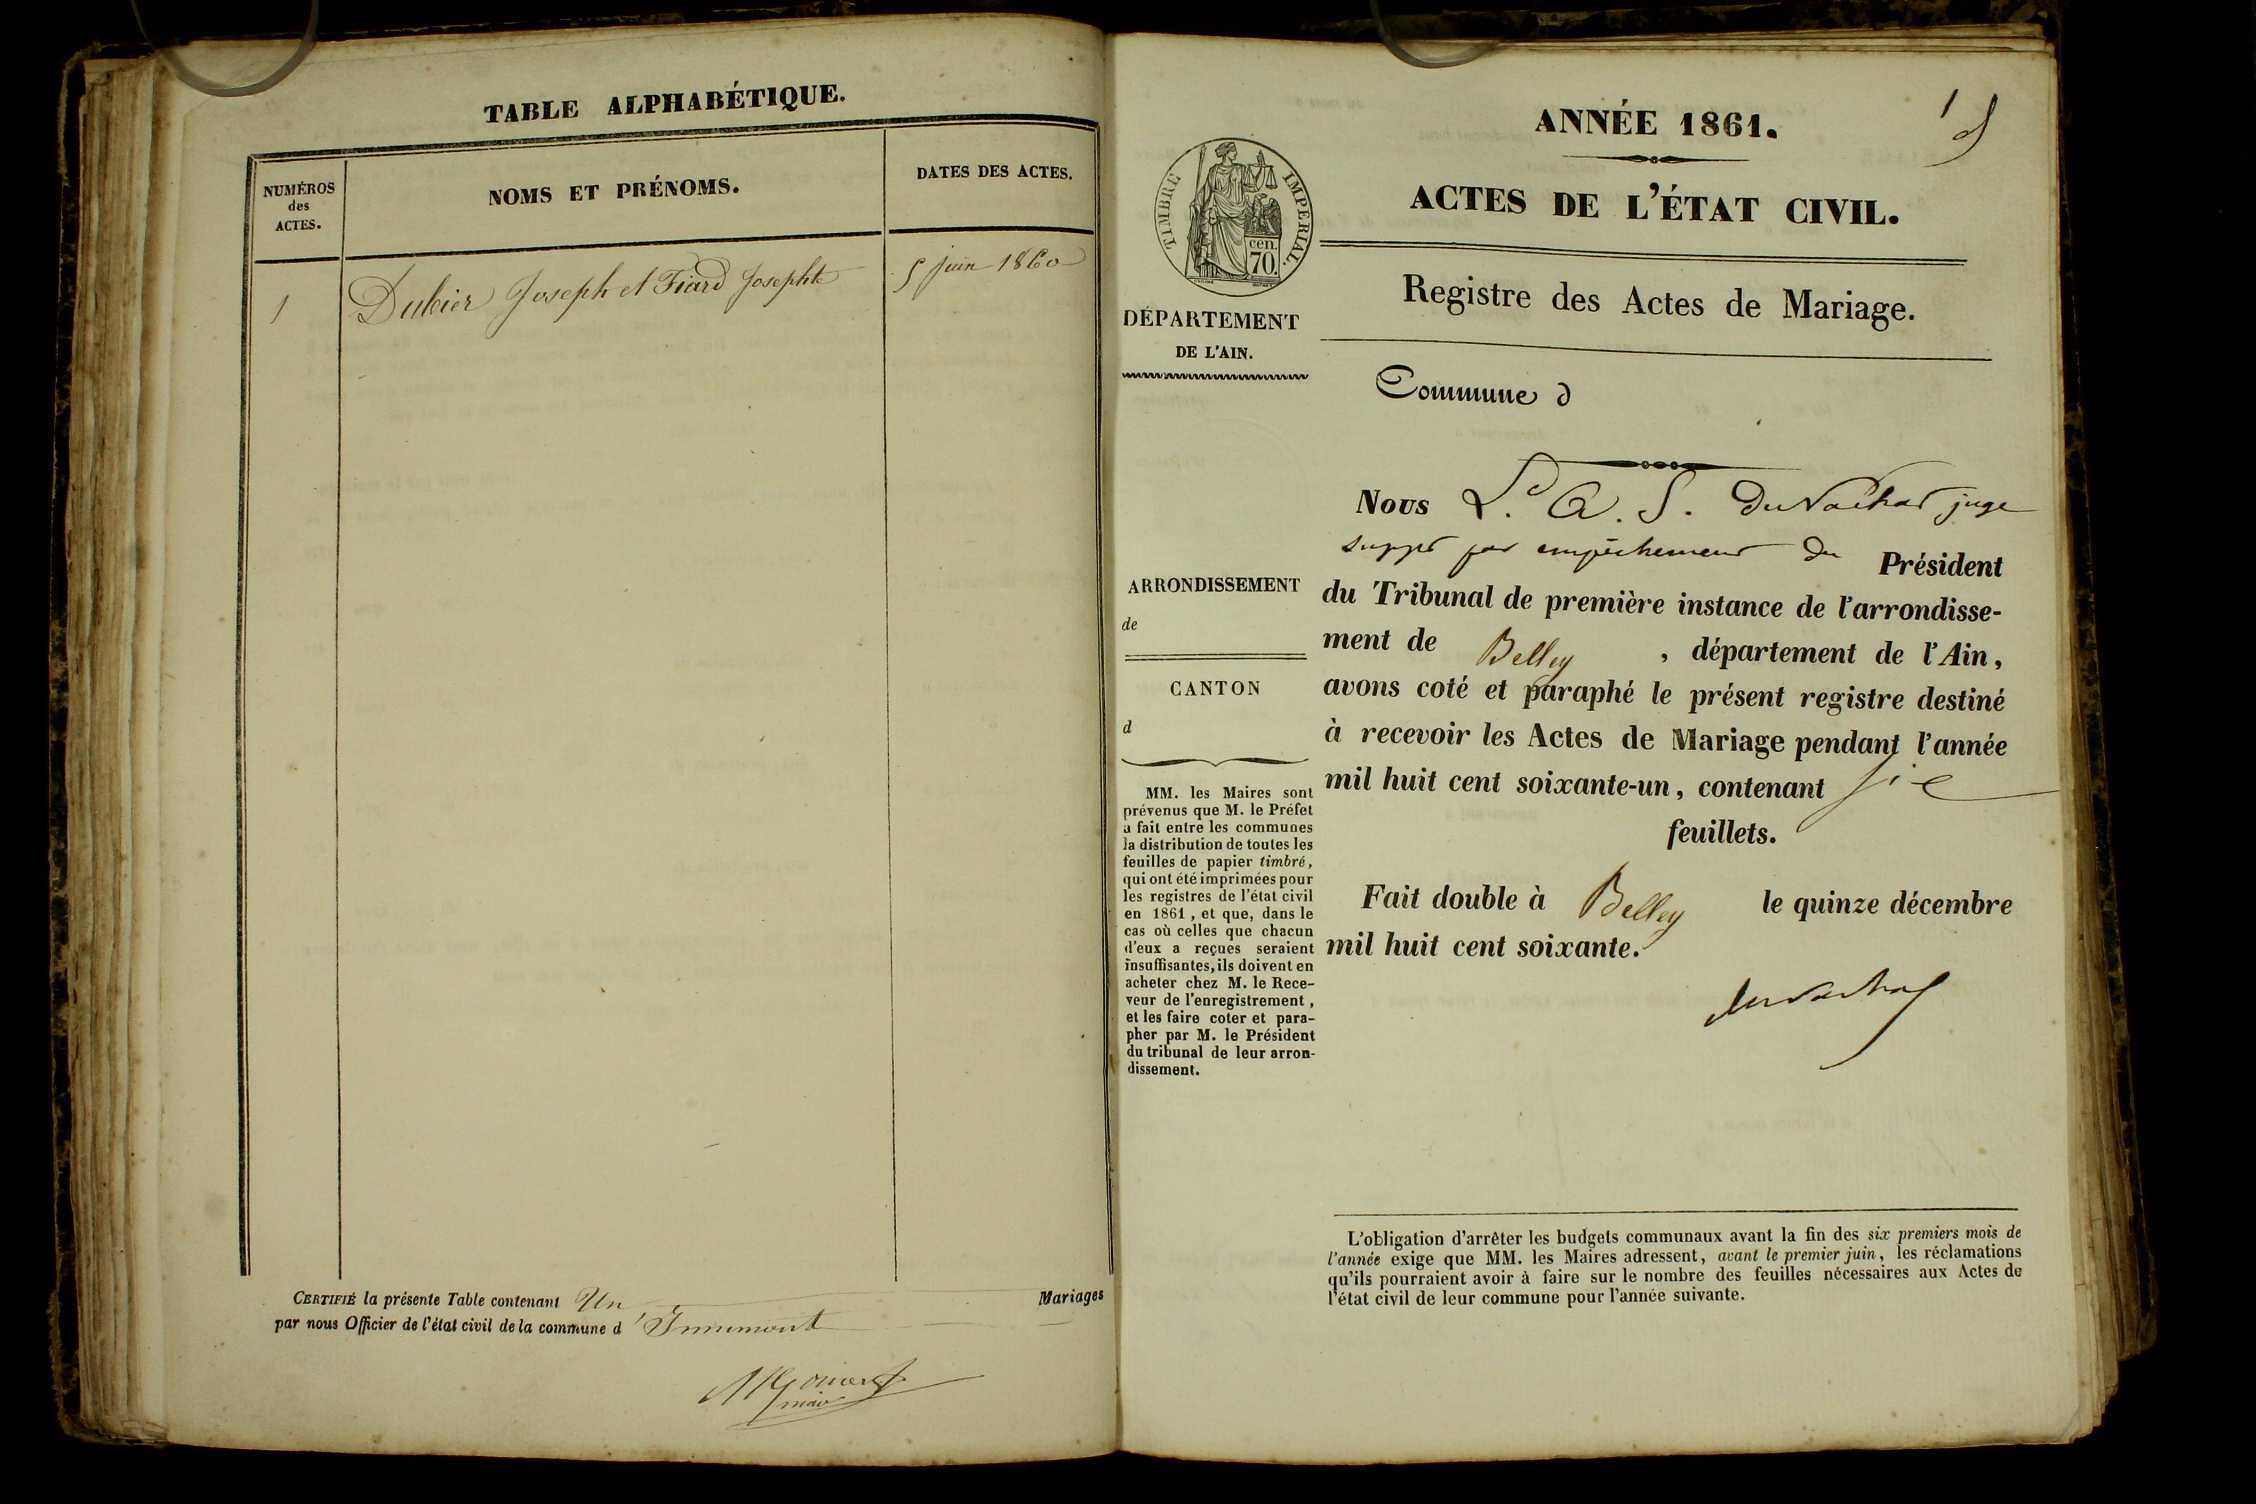 TABLE ALPHABÉTIQUE.
NUMÉROS
des
ACTES.
NOMS ET PRÉNOMS.
DATES DES ACTES.
1
Dubier Joseph et Fiard Josephte
5 juin 1860
CERTIFIÉ la présente Table contenant Un Mariages
par nous Officier de l'état civil de la commune d'Innimont
maire
1
ANNÉE 1861.
ACTES DE L'ÉTAT CIVIL.
TIMBRE IMPERIAL.
cen.
70.
Registre des Actes de Mariage.
DÉPARTEMENT
DE L'AIN.
Commune d
Nous L. A. S. Duvachat juge
suppt par empêchement du Président
du Tribunal de première instance de l'arrondisse-
ment de Belley, département de l'Ain,
avons coté et paraphé le présent registre destiné
à recevoir les Actes de Mariage pendant l'année
mil huit cent soixante-un, contenant six
feuillets.
Fait double à Belley le quinze décembre
mil huit cent soixante.
Duvachat
ARRONDISSEMENT
de
CANTON
d
MM. les Maires sont
prévenus que M. le Préfet
a fait entre les communes
la distribution de toutes les
feuilles de papier timbré,
qui ont été imprimées pour
les registres de l'état civil
en 1861, et que, dans le
cas où celles que chacun
d'eux a reçues seraient
insuffisantes, ils doivent en
acheter chez M. le Rece-
veur de l'enregistrement,
et les faire coter et para-
pher par M. le Président
du tribunal de leur arron-
dissement.
L'obligation d'arrêter les budgets communaux avant la fin des six premiers mois de
l'année exige que MM. les Maires adressent, avant le premier juin, les réclamations
qu'ils pourraient avoir à faire sur le nombre des feuilles nécessaires aux Actes de
l'état civil de leur commune pour l'année suivante.